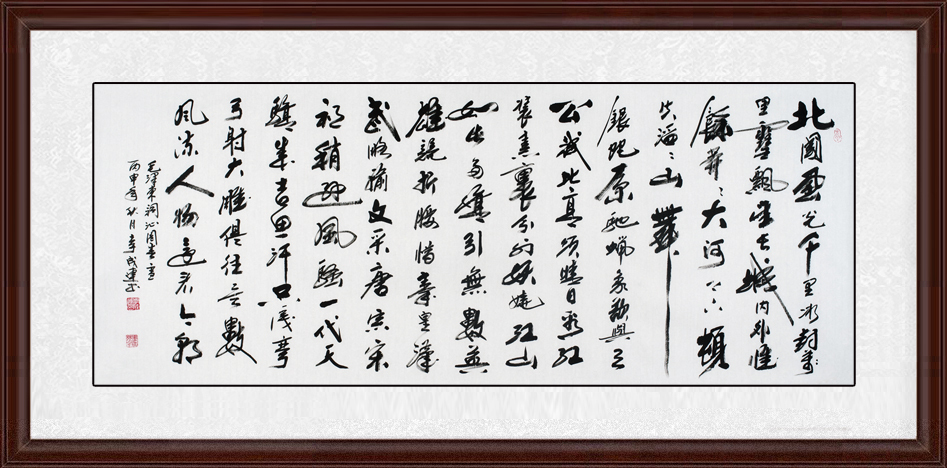 北國風光千里冰封萬
里雪飄望長城内外惟
餘莽〻大河上下頓
失滔〻山舞
銀蛇原馳蠟象欲與天
公試比高須晴日看紅
裝素裹分外妖嬈江山
如此多嬌引無數英
雄競折腰惜秦皇漢
武略輸文采唐宗宋
祖稍遜風騷一代天
驕成吉思汗只識彎
弓射大雕俱往矣數
風流人物還看今朝
毛澤東詞沁園春雪
丙申年秋月李成連書